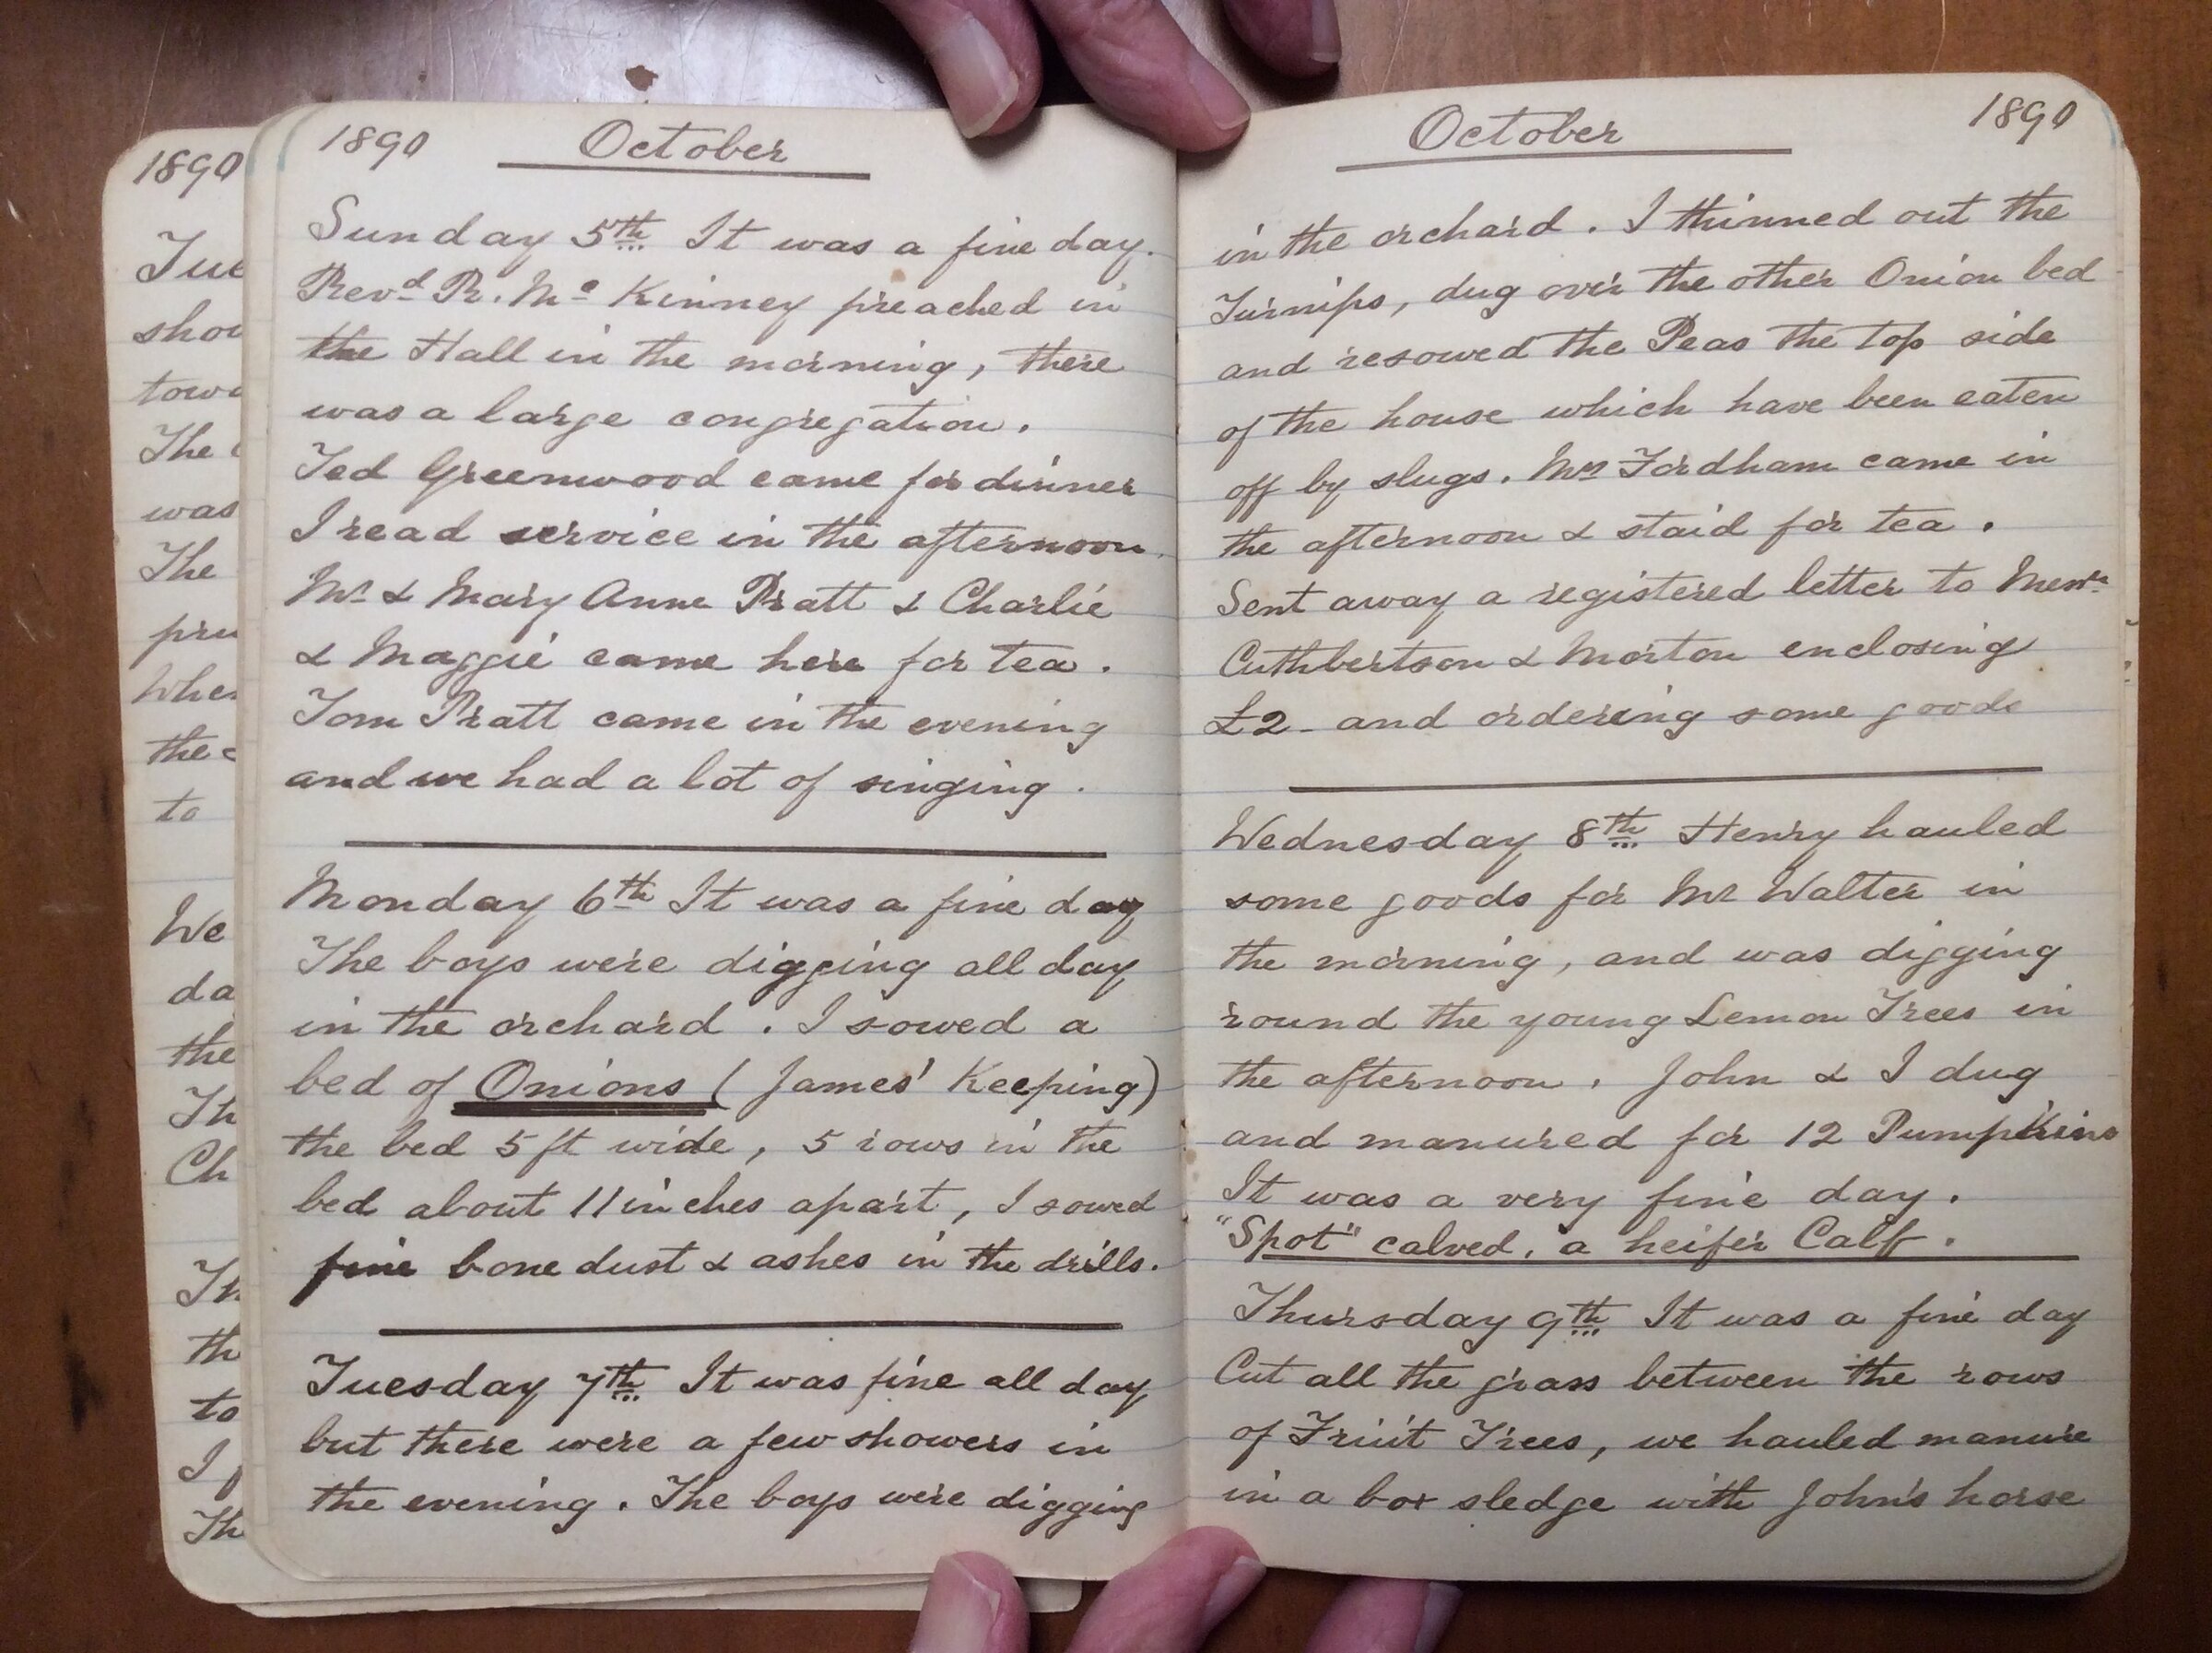 1890 October
Sunday 5th It was a fine day.
Revd R. Mc Kinney preached in
the Hall in the morning, there
was a large congregation.
Ted Greenwood came for dinner
I read service in the afternoon.
Mr & Mary Anne Pratt & Charlie
& Maggie came here for tea.
Tom Pratt came in the evening
and we had a lot of singing.
Monday 6th It was a fine day
The boys were digging all day
in the orchard. I sowed a
bed of Onions (James' Keeping)
the bed 5 ft wide, 5 rows in the
bed about 11 inches apart, I sowed
fine bone dust & ashes in the drills.
Tuesday 7th It was fine all day
but there were a few showers in
the evening. The boys were digging
October 1890
in the orchard. I thinned out the
Turnips, dug over the other Onion bed
and resowed the Peas the top side
of the house which have been eaten
off by slugs. Mrs Fordham came in
the afternoon & staid for tea.
Sent away a registered letter to Messrs
Cuthbertson & Morton enclosing
£2 - and ordering some goods
Wednesday 8th Henry hauled
some goods for Mr Walter in
the morning, and was digging
round the young Lemon Trees in
the afternoon. John & I dug
and manured for 12 Pumpkins
It was a very fine day.
"Spot" calved, a heifer Calf.
Thursday 9th It was a fine day
Cut all the grass between the rows
of Fruit Trees, we hauled manure
in a box sledge with John's horse
1890
to
We